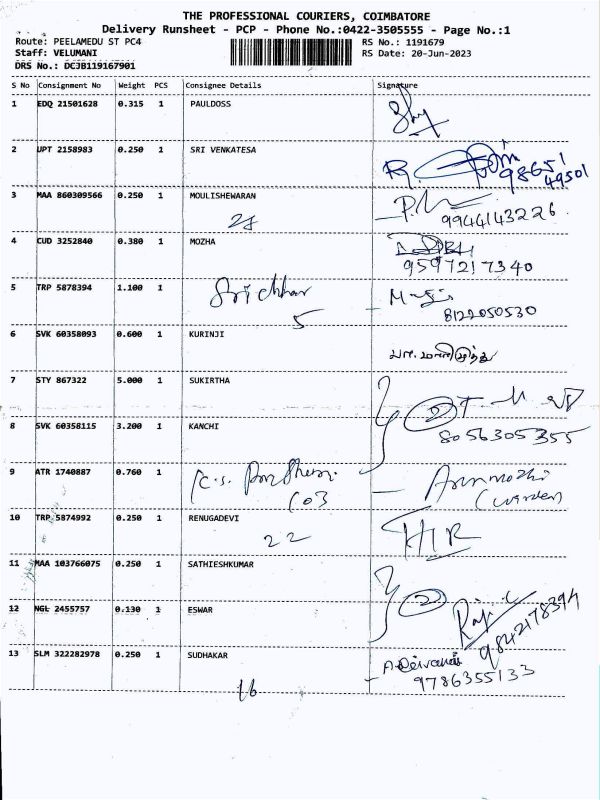 THE PROFESSIONAL COURIERS, COIMBATORE
Delivery Runsheet - PCP - Phone No.:0422-3505555 - Page No.:1
Route: PEELAMEDU ST PC4 RS No.: 1191679
Staff: VELUMANI RS Date: 20-Jun-2023
DRS No.: DCJB119167901
S No Consignment No Weight PCS Consignee Details Signature
1 EDQ 21501628 0.315 1 PAULDOSS
2 UPT 2158983 0.250 1 SRI VENKATESA
98651
49501
3 MAA 860309566 0.250 1 MOULISHEWARAN
9944143226
4 CUD 3252840 0.380 1 MOZHA
9597217340
5 TRP 5878394 1.100 1
5
8122050530
6 SVK 60358093 0.600 1 KURINJI
7 STY 867322 5.000 1 SUKIRTHA
2
8 SVK 60358115 3.200 1 KANCHI
8056305355
9 ATR 1740887 0.760 1
103
Arunmozhi
(warden)
10 TRP 5874992 0.250 1 RENUGADEVI
22
11 MAA 103766075 0.250 1 SATHIESHKUMAR
2
12 NGL 2455757 0.130 1 ESWAR
9842178394
13 SLM 322282978 0.250 1 SUDHAKAR
16
9786355133